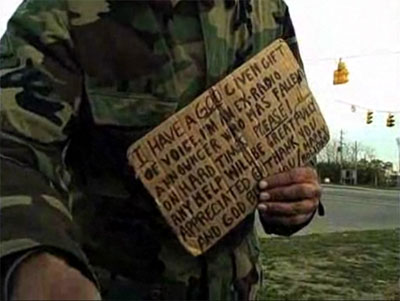 I HAVE A GOD GIVEN GIFT
OF VOICE. I'M AN EX-RADIO
ANNOUNCER WHO HAS FALLEN
ON HARD TIMES. PLEASE!
ANY HELP WILL BE GREATFULLY
APPRECIATED. THANK YOU
AND GOD BLESS YOU.